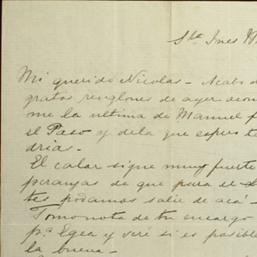 Sta Ines
Mi querido Nicolas - Acabo d
gratos renglones de ayer
me la ultima de Manuel
el Paso y de la que espero te
dria.
El calor sigue muy fuerte
peranzas de que para el
tes podamos salir de acá -
Tomo nota de tu encargo
pa Egea y veré si es posible
la buena -